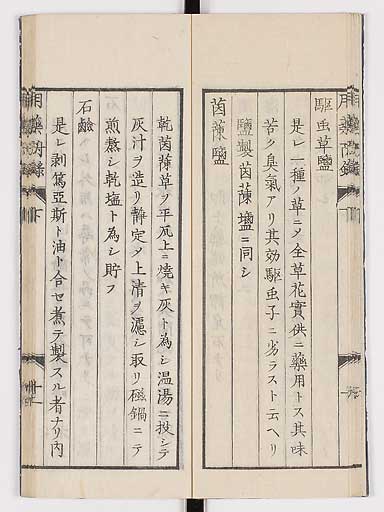 駆虫草鹽
是レ一種ノ草ニメ全草花實供ニ藥用トス其味
苦ク臭氣アリ其効駆虫子ニ劣ラスト云ヘリ
茵蔯鹽
鹽製茵蔯鹽ニ同シ
乾茵蔯草ヲ平瓦上ニ燒キ灰ト為シ温湯ニ投シテ
灰汁ヲ造リ静定メ上清ヲ濾シ取リ磁鍋ニテ
煎熬シ乾塩ト為シ貯フ
石鹼
是レ剥篤亞斯ト油ト合セ煮テ製スル者ナリ内